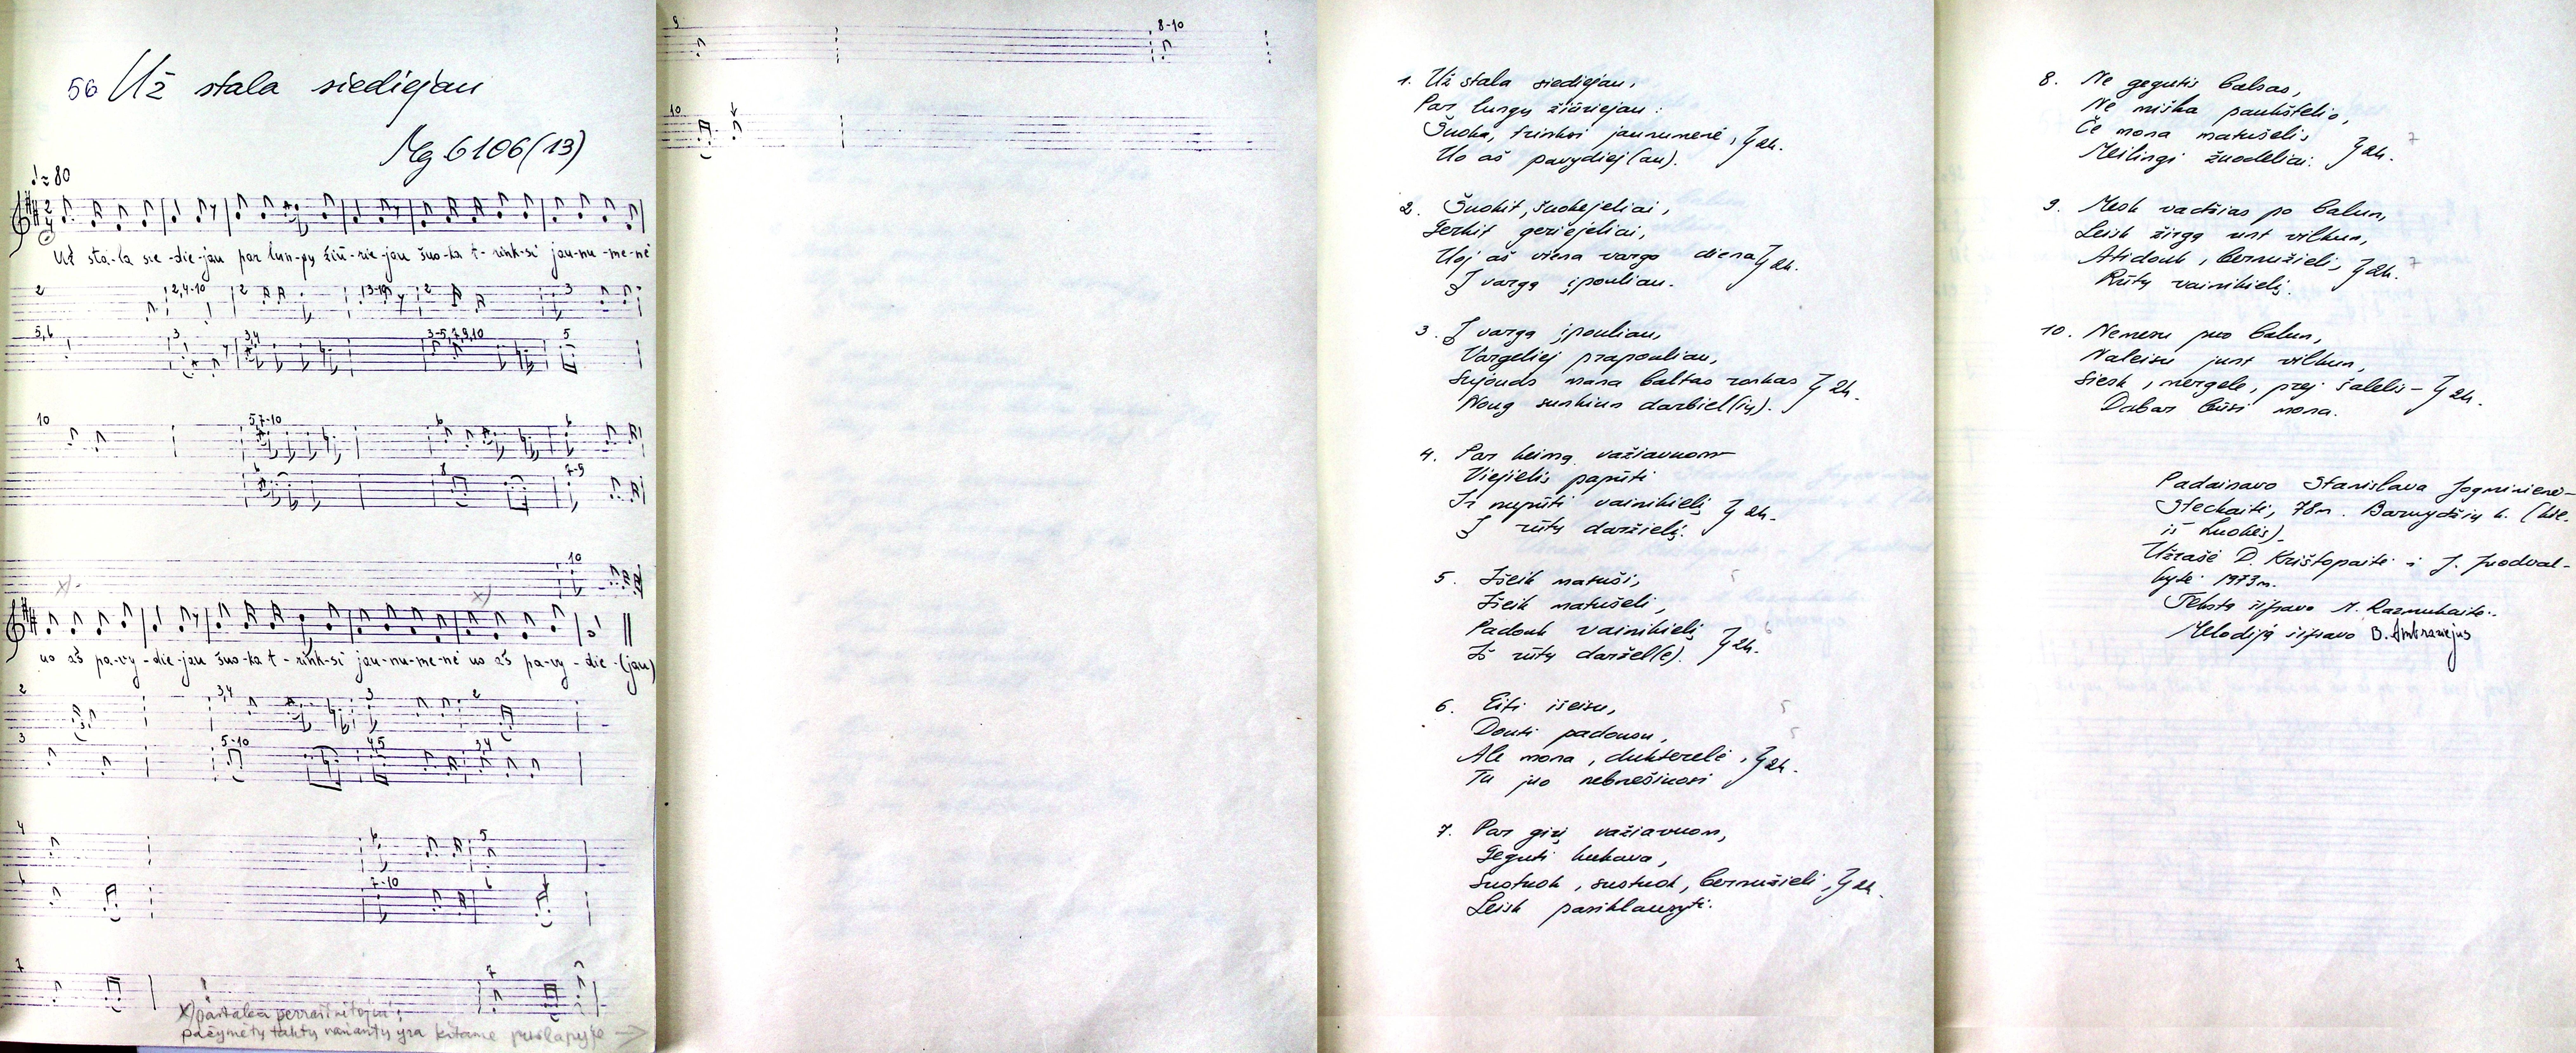 56 Už stala siediejau
Mg 6106(13)
♩≈80
Už sta-la sie-die-jau par lun-gų žiū-rie-jau šuo-ka t-rink-si jau-nu-me-nė
2 2,4-10 2 2 3
5,6 3 3,4 3-5,7,9,10 5
10 5,7-10 6 6
6 8 7-9
10
x) x)
uo aš pa-vy-die-jau šuo-ka t-rink-si jau-nu-me-nė uo aš pa-vy-die-(jau)
2 3,4 3 2
3 5-10 4,5 3,4
4 6 5
6 7-10 6
7 7
x) pastaba perrašinėtojui:
pažymėtų taktų variantų yra kitame puslapyje →
9 8-10
10
1. Už stala siediejau,
Par lungų žiūriejau:
Šuoka, trinksi jaunumenė, } 2k.
Uo aš pavydiej(au).
2. Šuokit, šuokejeliai,
Gerkit geriejeliai,
Uoj aš viena vargo diena } 2k.
Į vargą įpouliau.
3. Į vargą įpouliau,
Vargeliej prapouliau,
Sujouds mana baltas rankas } 2k.
Noug sunkiun darbiel(ių).
4. Par keimą važiavuom
Viejielis papūti
Ir nupūti vainikielį } 2k.
Į rūtų daržielį.
5. Išeik matuši,
Išeik matušeli,
Padouk vainikielį } 2k.
Iš rūtų daržel(e).
6. Eiti išeisu,
Douti padousu,
Ale mona, dukterelė, } 2k.
Tu juo nebnešiuosi
7. Par girį važiavuom,
Geguti kukava,
Sustuok, sustuok, bernužieli, } 2k.
Leisk pasiklausyti.
8. Ne gegutis balsas,
Ne miška paukštelio,
Če mona matušelis } 2k.
Meilingi žuodeliai.
9. Mesk vadžias po balun,
Leisk žirgą unt vilkun,
Atidouk, bernužieli, } 2k.
Rūtų vainikielį.
10. Nemesu puo balun,
Naleisu junt vilkun,
Siesk, mergele, prej šalelis – } 2k.
Dabar būsi mona.
Padainavo Stanislava Jogminienė-
Stechaitė, 78m. Barvydžių k. (kile.
iš Luokės).
Užrašė D. Krištopaitė ir J. Juodval-
kytė 1973m.
Tekstą šifravo N. Razmukaitė.
Melodiją šifravo B. Ambraziejus